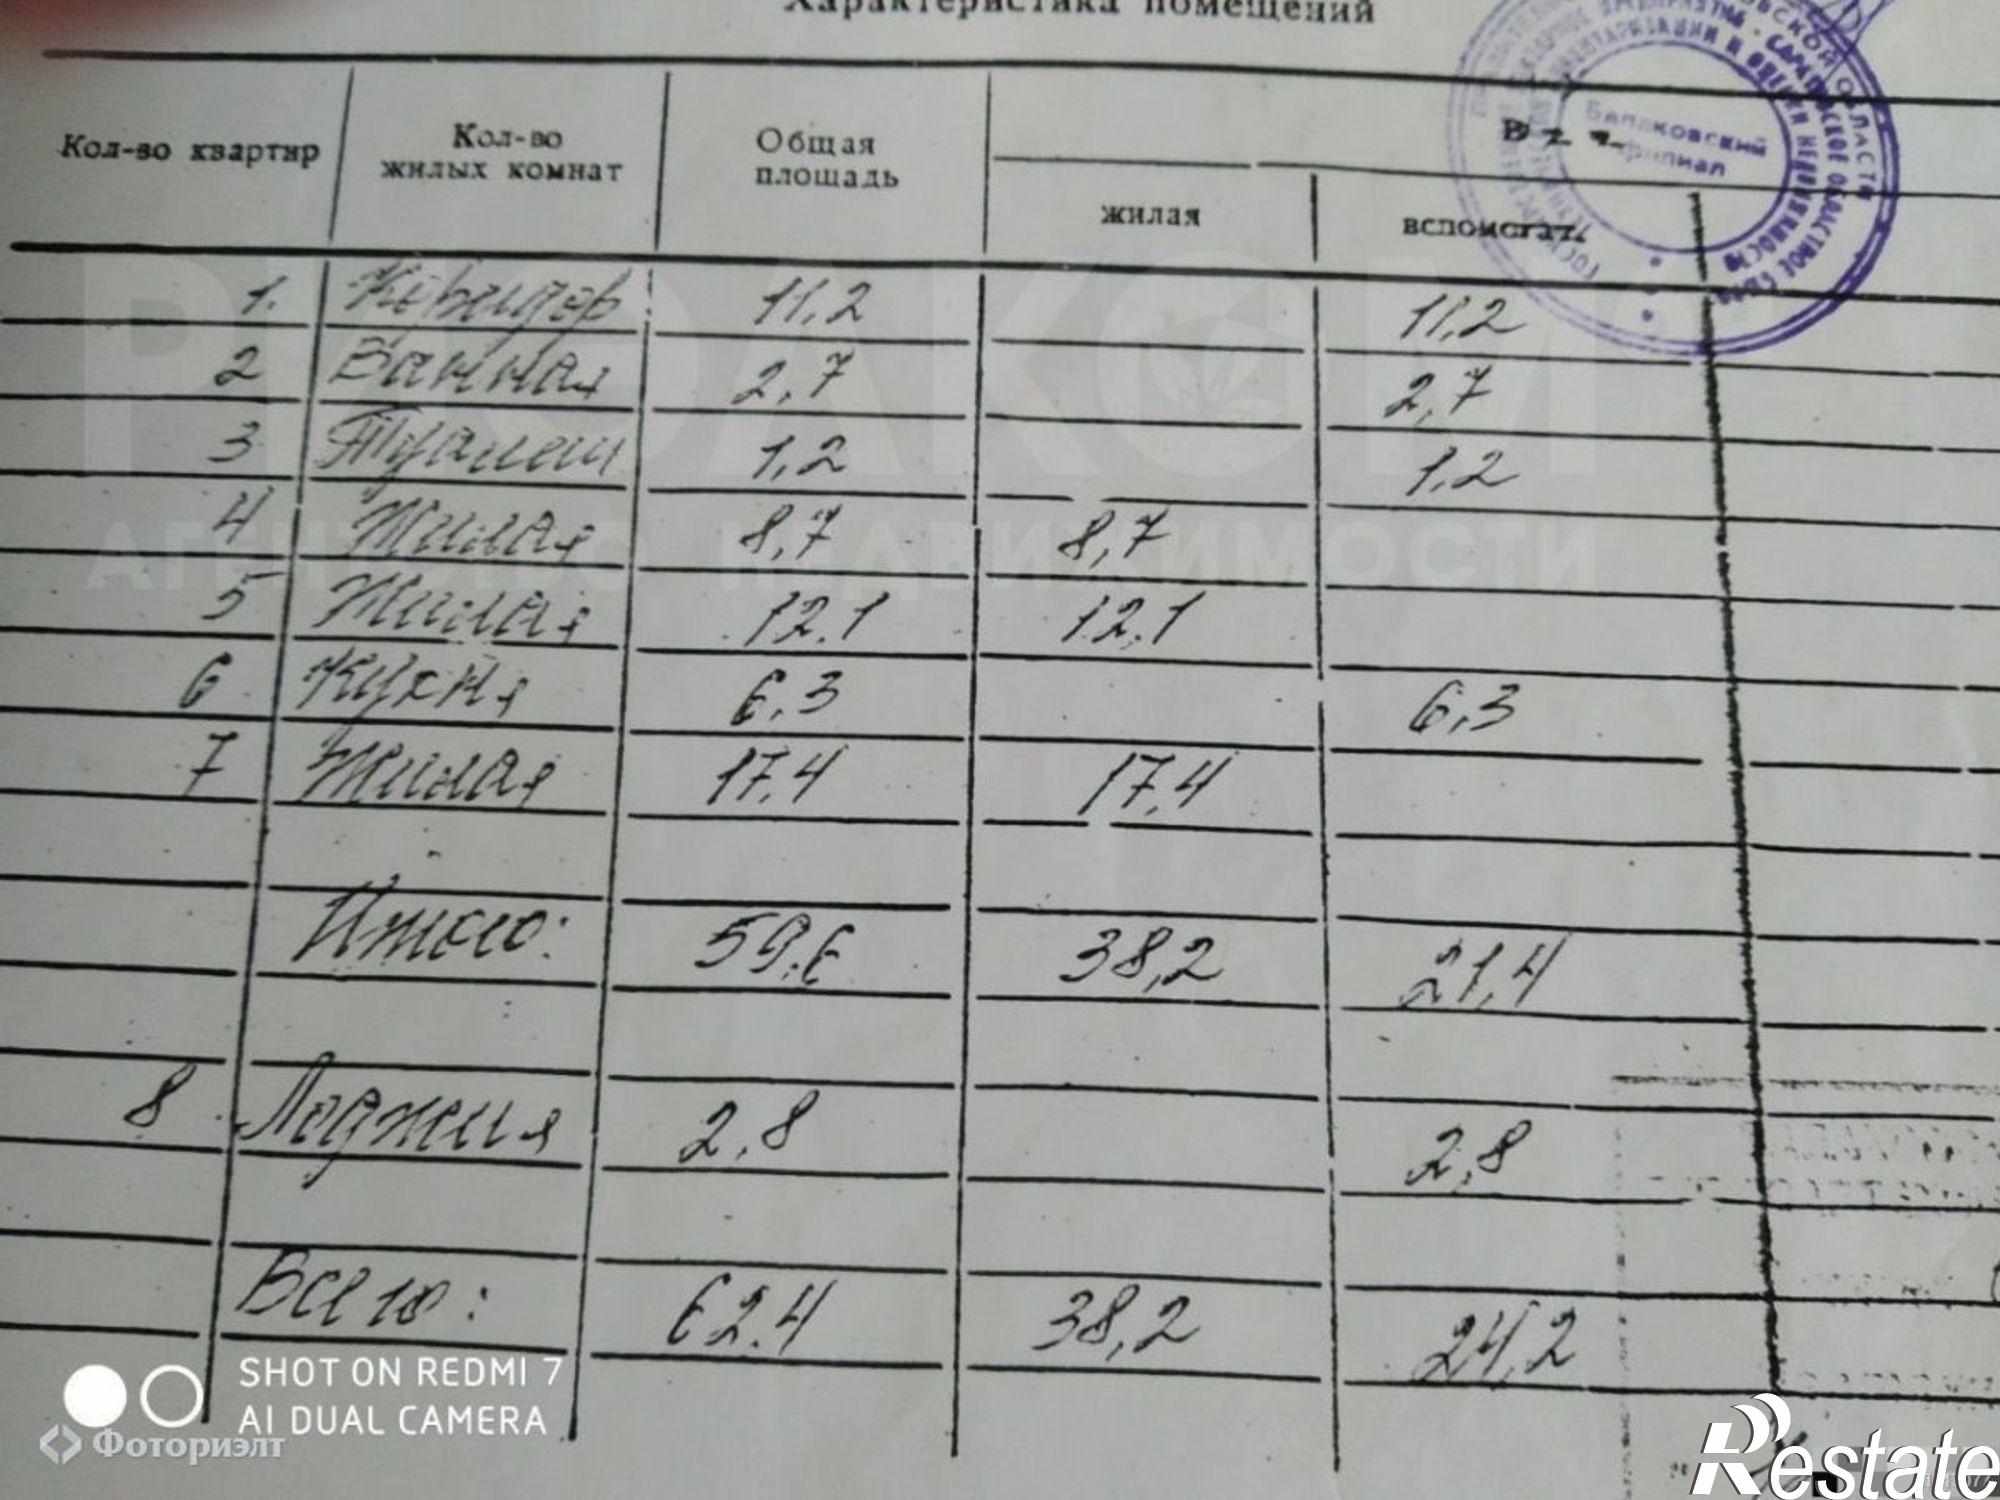 Характеристика помещений
Кол-во квартир
Кол-во
жилых комнат
Общая
площадь
жилая
вспомогат.
Балаковский
филиал
1. Коридор 11,2 11,2
2 Ванная 2,7 2,7
3 Туалет 1,2 1,2
4 Жилая 8,7 8,7
5 Жилая 12.1 12,1
6 Кухня 6,3 6,3
7 Жилая 17,4 17,4
Итого: 59,6 38,2 21,4
8 Лоджия 2,8 2,8
Всего: 62.4 38,2 24,2
РИЭЛКОМ
АГЕНТСТВО НЕДВИЖИМОСТИ
SHOT ON REDMI 7
AI DUAL CAMERA
Фоториэлт
Restate